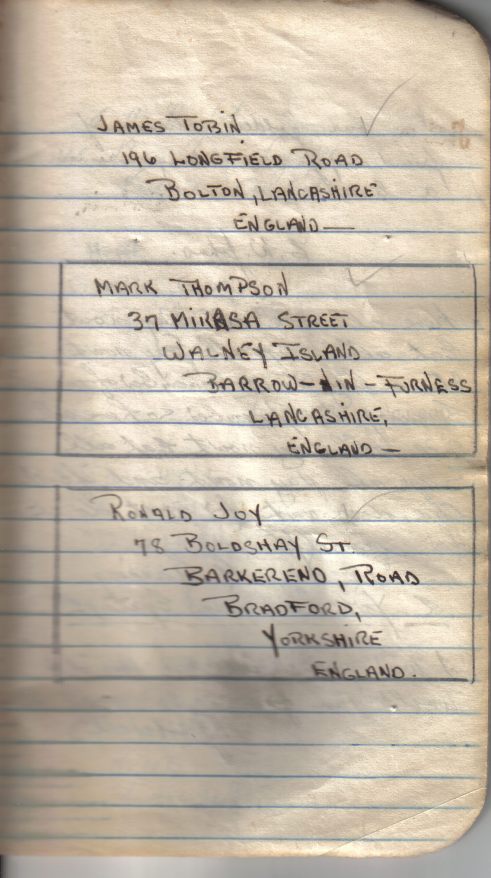 JAMES TOBIN
196 LONGFIELD ROAD
BOLTON, LANCASHIRE
ENGLAND—
MARK THOMPSON
37 MIKASA STREET
WALNEY ISLAND
BARROW-IN-FURNESS
LANCASHIRE,
ENGLAND—
RONALD JOY
78 BOLDSHAY ST.
BARKEREND, ROAD
BRADFORD,
YORKSHIRE
ENGLAND.